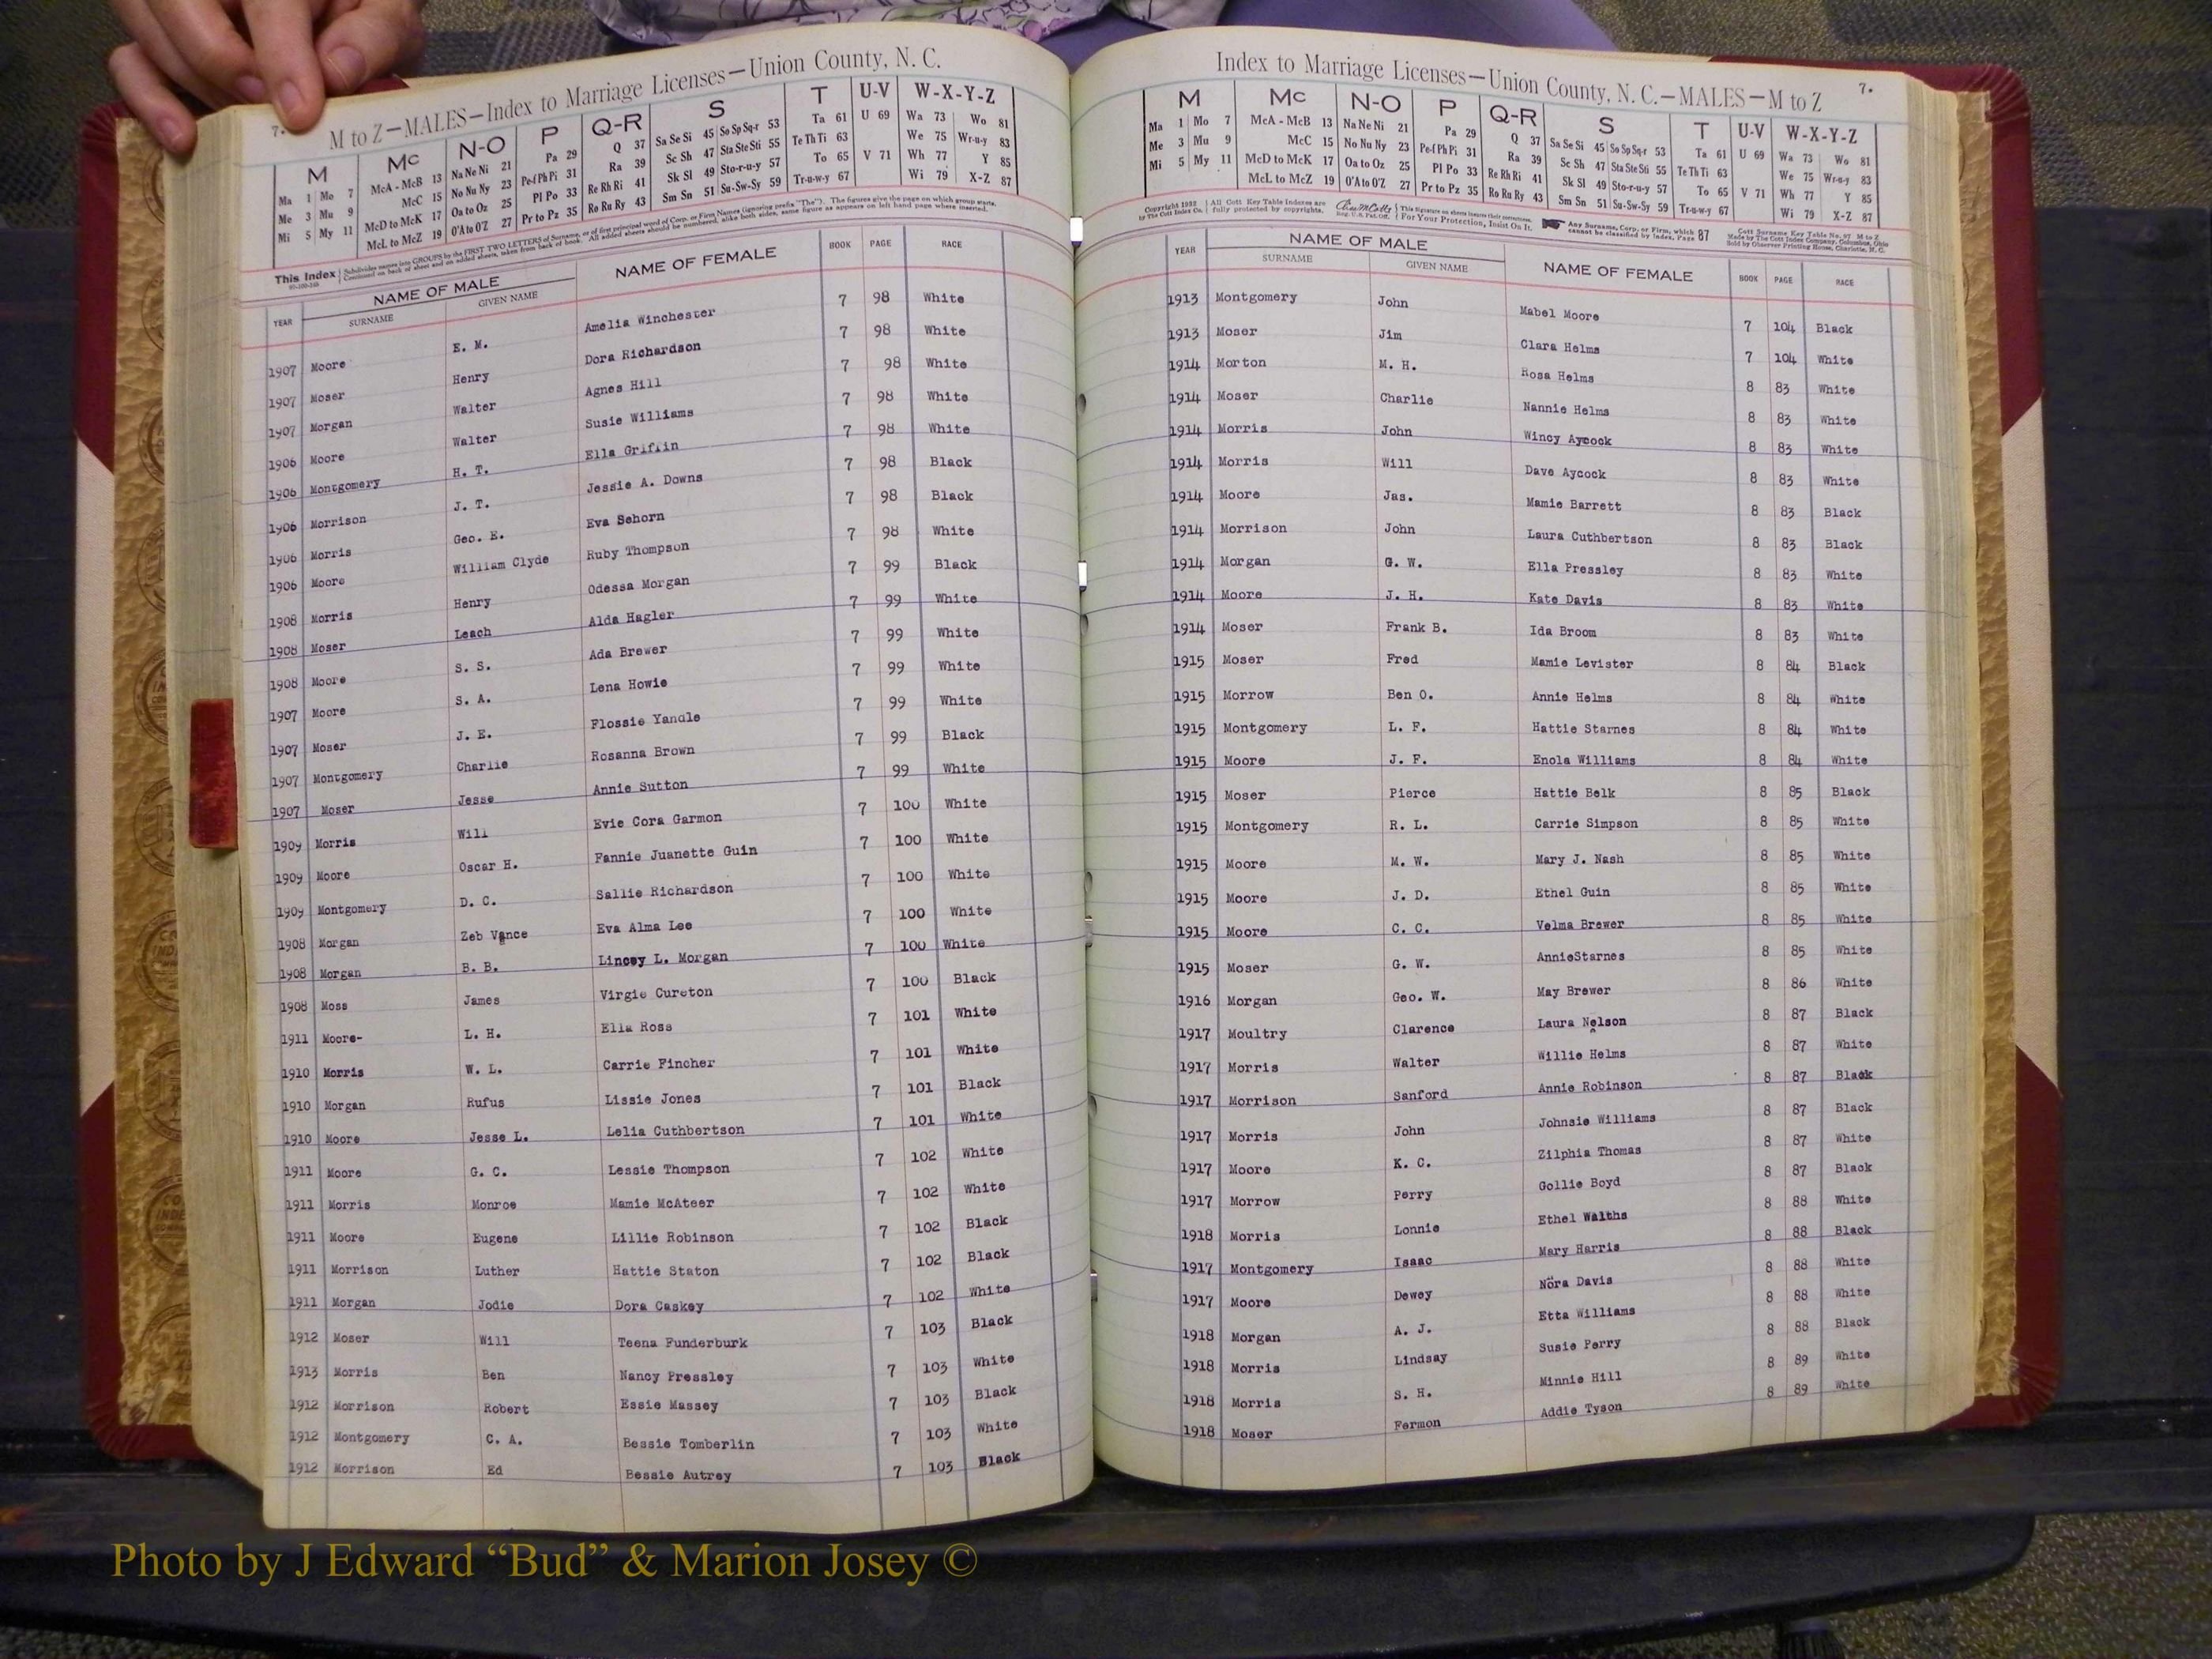 7.
M to Z—MALES—Index to Marriage Licenses—Union County, N. C.
M Mc N-O P Q-R S T U-V W-X-Y-Z
Ma 1 Mo 7 McA - McB 13 Na Ne Ni 21 Pa 29 Q 37 Sa Se Si 45 So Sp Sq-r 53 Ta 61 U 69 Wa 73 Wo 81
Me 3 Mu 9 McC 15 No Nu Ny 23 Pe-f Ph Pi 31 Ra 39 Sc Sh 47 Sta Ste Sti 55 Te Th Ti 63 We 75 Wr-u-y 83
Mi 5 My 11 McD to McK 17 Oa to Oz 25 Pl Po 33 Re Rh Ri 41 Sk Sl 49 Sto-r-u-y 57 To 65 V 71 Wh 77 Y 85
McL to McZ 19 O'A to O'Z 27 Pr to Pz 35 Ro Ru Ry 43 Sm Sn 51 Su-Sw-Sy 59 Tr-u-w-y 67 Wi 79 X-Z 87
This Index Subdivides names into GROUPS by the FIRST TWO LETTERS of Surname, or of first principal word of Corp. or Firm Names (Ignoring prefix "The"). The figures give the page on which group starts.
Continued on back of sheet and on added sheets, taken from back of book. All added sheets should be numbered, alike both sides, same figure as appears on left hand page where inserted.
YEAR NAME OF MALE SURNAME GIVEN NAME NAME OF FEMALE BOOK PAGE RACE
1907 Moore E. M. Amelia Winchester 7 98 White
1907 Moser Henry Dora Richardson 7 98 White
1907 Morgan Walter Agnes Hill 7 98 White
1906 Moore Walter Susie Williams 7 98 White
1906 Montgomery H. T. Ella Griffin 7 98 White
1906 Morrison J. T. Jessie A. Downs 7 98 Black
1906 Morris Geo. E. Eva Sehorn 7 98 Black
1906 Moore William Clyde Ruby Thompson 7 98 White
1908 Morris Henry Odessa Morgan 7 99 Black
1908 Moser Leach Alda Hagler 7 99 White
1908 Moore S. S. Ada Brewer 7 99 White
1907 Moore S. A. Lena Howie 7 99 White
1907 Moser J. E. Flossie Yandle 7 99 White
1907 Montgomery Charlie Rosanna Brown 7 99 Black
1907 Moser Jesse Annie Sutton 7 99 White
1909 Morris Will Evie Cora Garmon 7 100 White
1909 Moore Oscar H. Fannie Juanette Guin 7 100 White
1909 Montgomery D. C. Sallie Richardson 7 100 White
1908 Morgan Zeb Vance Eva Alma Lee 7 100 White
1908 Morgan B. B. Lincey L. Morgan 7 100 White
1908 Moss James Virgie Cureton 7 100 Black
1911 Moore- L. H. Ella Ross 7 101 White
1910 Morris W. L. Carrie Fincher 7 101 White
1910 Morgan Rufus Lissie Jones 7 101 Black
1910 Moore Jesse L. Lelia Cuthbertson 7 101 White
1911 Moore G. C. Lessie Thompson 7 102 White
1911 Morris Monroe Mamie McAteer 7 102 White
1911 Moore Eugene Lillie Robinson 7 102 Black
1911 Morrison Luther Hattie Staton 7 102 Black
1911 Morgan Jodie Dora Caskey 7 102 White
1912 Moser Will Teena Funderburk 7 103 Black
1913 Morris Ben Nancy Pressley 7 103 White
1912 Morrison Robert Essie Massey 7 103 Black
1912 Montgomery C. A. Bessie Tomberlin 7 103 White
1912 Morrison Ed Bessie Autrey 7 103 Black
Index to Marriage Licenses—Union County, N. C.—MALES—M to Z 7.
M Mc N-O P Q-R S T U-V W-X-Y-Z
Ma 1 Mo 7 McA - McB 13 Na Ne Ni 21 Pa 29 Q 37 Sa Se Si 45 So Sp Sq-r 53 Ta 61 U 69 Wa 73 Wo 81
Me 3 Mu 9 McC 15 No Nu Ny 23 Pe-f Ph Pi 31 Ra 39 Sc Sh 47 Sta Ste Sti 55 Te Th Ti 63 We 75 Wr-u-y 83
Mi 5 My 11 McD to McK 17 Oa to Oz 25 Pl Po 33 Re Rh Ri 41 Sk Sl 49 Sto-r-u-y 57 To 65 V 71 Wh 77 Y 85
McL to McZ 19 O'A to O'Z 27 Pr to Pz 35 Ro Ru Ry 43 Sm Sn 51 Su-Sw-Sy 59 Tr-u-w-y 67 Wi 79 X-Z 87
Copyright 1932 All Cott Key Table Indexes are This signature on sheets insures their correctness. Any Surname, Corp. or Firm, which Cott Surname Key Table No. 97 M to Z
by The Cott Index Co. fully protected by copyrights. Reg. U.S. Pat. Off. For Your Protection, Insist On It. cannot be classified by Index, Page 87 Made by The Cott Index Company, Columbus, Ohio
Sold by Observer Printing House, Charlotte, N. C.
YEAR NAME OF MALE SURNAME GIVEN NAME NAME OF FEMALE BOOK PAGE RACE
1913 Montgomery John Mabel Moore 7 104 Black
1913 Moser Jim Clara Helms 7 104 White
1914 Morton M. H. Rosa Helms 8 83 White
1914 Moser Charlie Nannie Helms 8 83 White
1914 Morris John Wincy Aycock 8 83 White
1914 Morris Will Dave Aycock 8 83 White
1914 Moore Jas. Mamie Barrett 8 83 Black
1914 Morrison John Laura Cuthbertson 8 83 Black
1914 Morgan G. W. Ella Pressley 8 83 White
1914 Moore J. H. Kate Davis 8 83 White
1914 Moser Frank B. Ida Broom 8 83 White
1915 Moser Fred Mamie Levister 8 84 Black
1915 Morrow Ben O. Annie Helms 8 84 White
1915 Montgomery L. F. Hattie Starnes 8 84 White
1915 Moore J. F. Enola Williams 8 84 White
1915 Moser Pierce Hattie Belk 8 85 Black
1915 Montgomery R. L. Carrie Simpson 8 85 White
1915 Moore M. W. Mary J. Nash 8 85 White
1915 Moore J. D. Ethel Guin 8 85 White
1915 Moore C. C. Velma Brewer 8 85 White
1915 Moser G. W. AnnieStarnes 8 85 White
1916 Morgan Geo. W. May Brewer 8 86 White
1917 Moultry Clarence Laura Nelson 8 87 Black
1917 Morris Walter Willie Helms 8 87 White
1917 Morrison Sanford Annie Robinson 8 87 Black
1917 Morris John Johnsie Williams 8 87 Black
1917 Moore K. C. Zilphia Thomas 8 87 White
1917 Morrow Perry Gollie Boyd 8 87 Black
1918 Morris Lonnie Ethel Walths 8 88 White
1917 Montgomery Isaac Mary Harris 8 88 Black
1917 Moore Dewey Nora Davis 8 88 White
1918 Morgan A. J. Etta Williams 8 88 White
1918 Morris Lindsay Susie Perry 8 88 Black
1918 Morris S. H. Minnie Hill 8 89 White
1918 Moser Fermon Addie Tyson 8 89 White
Photo by J Edward “Bud” & Marion Josey ©